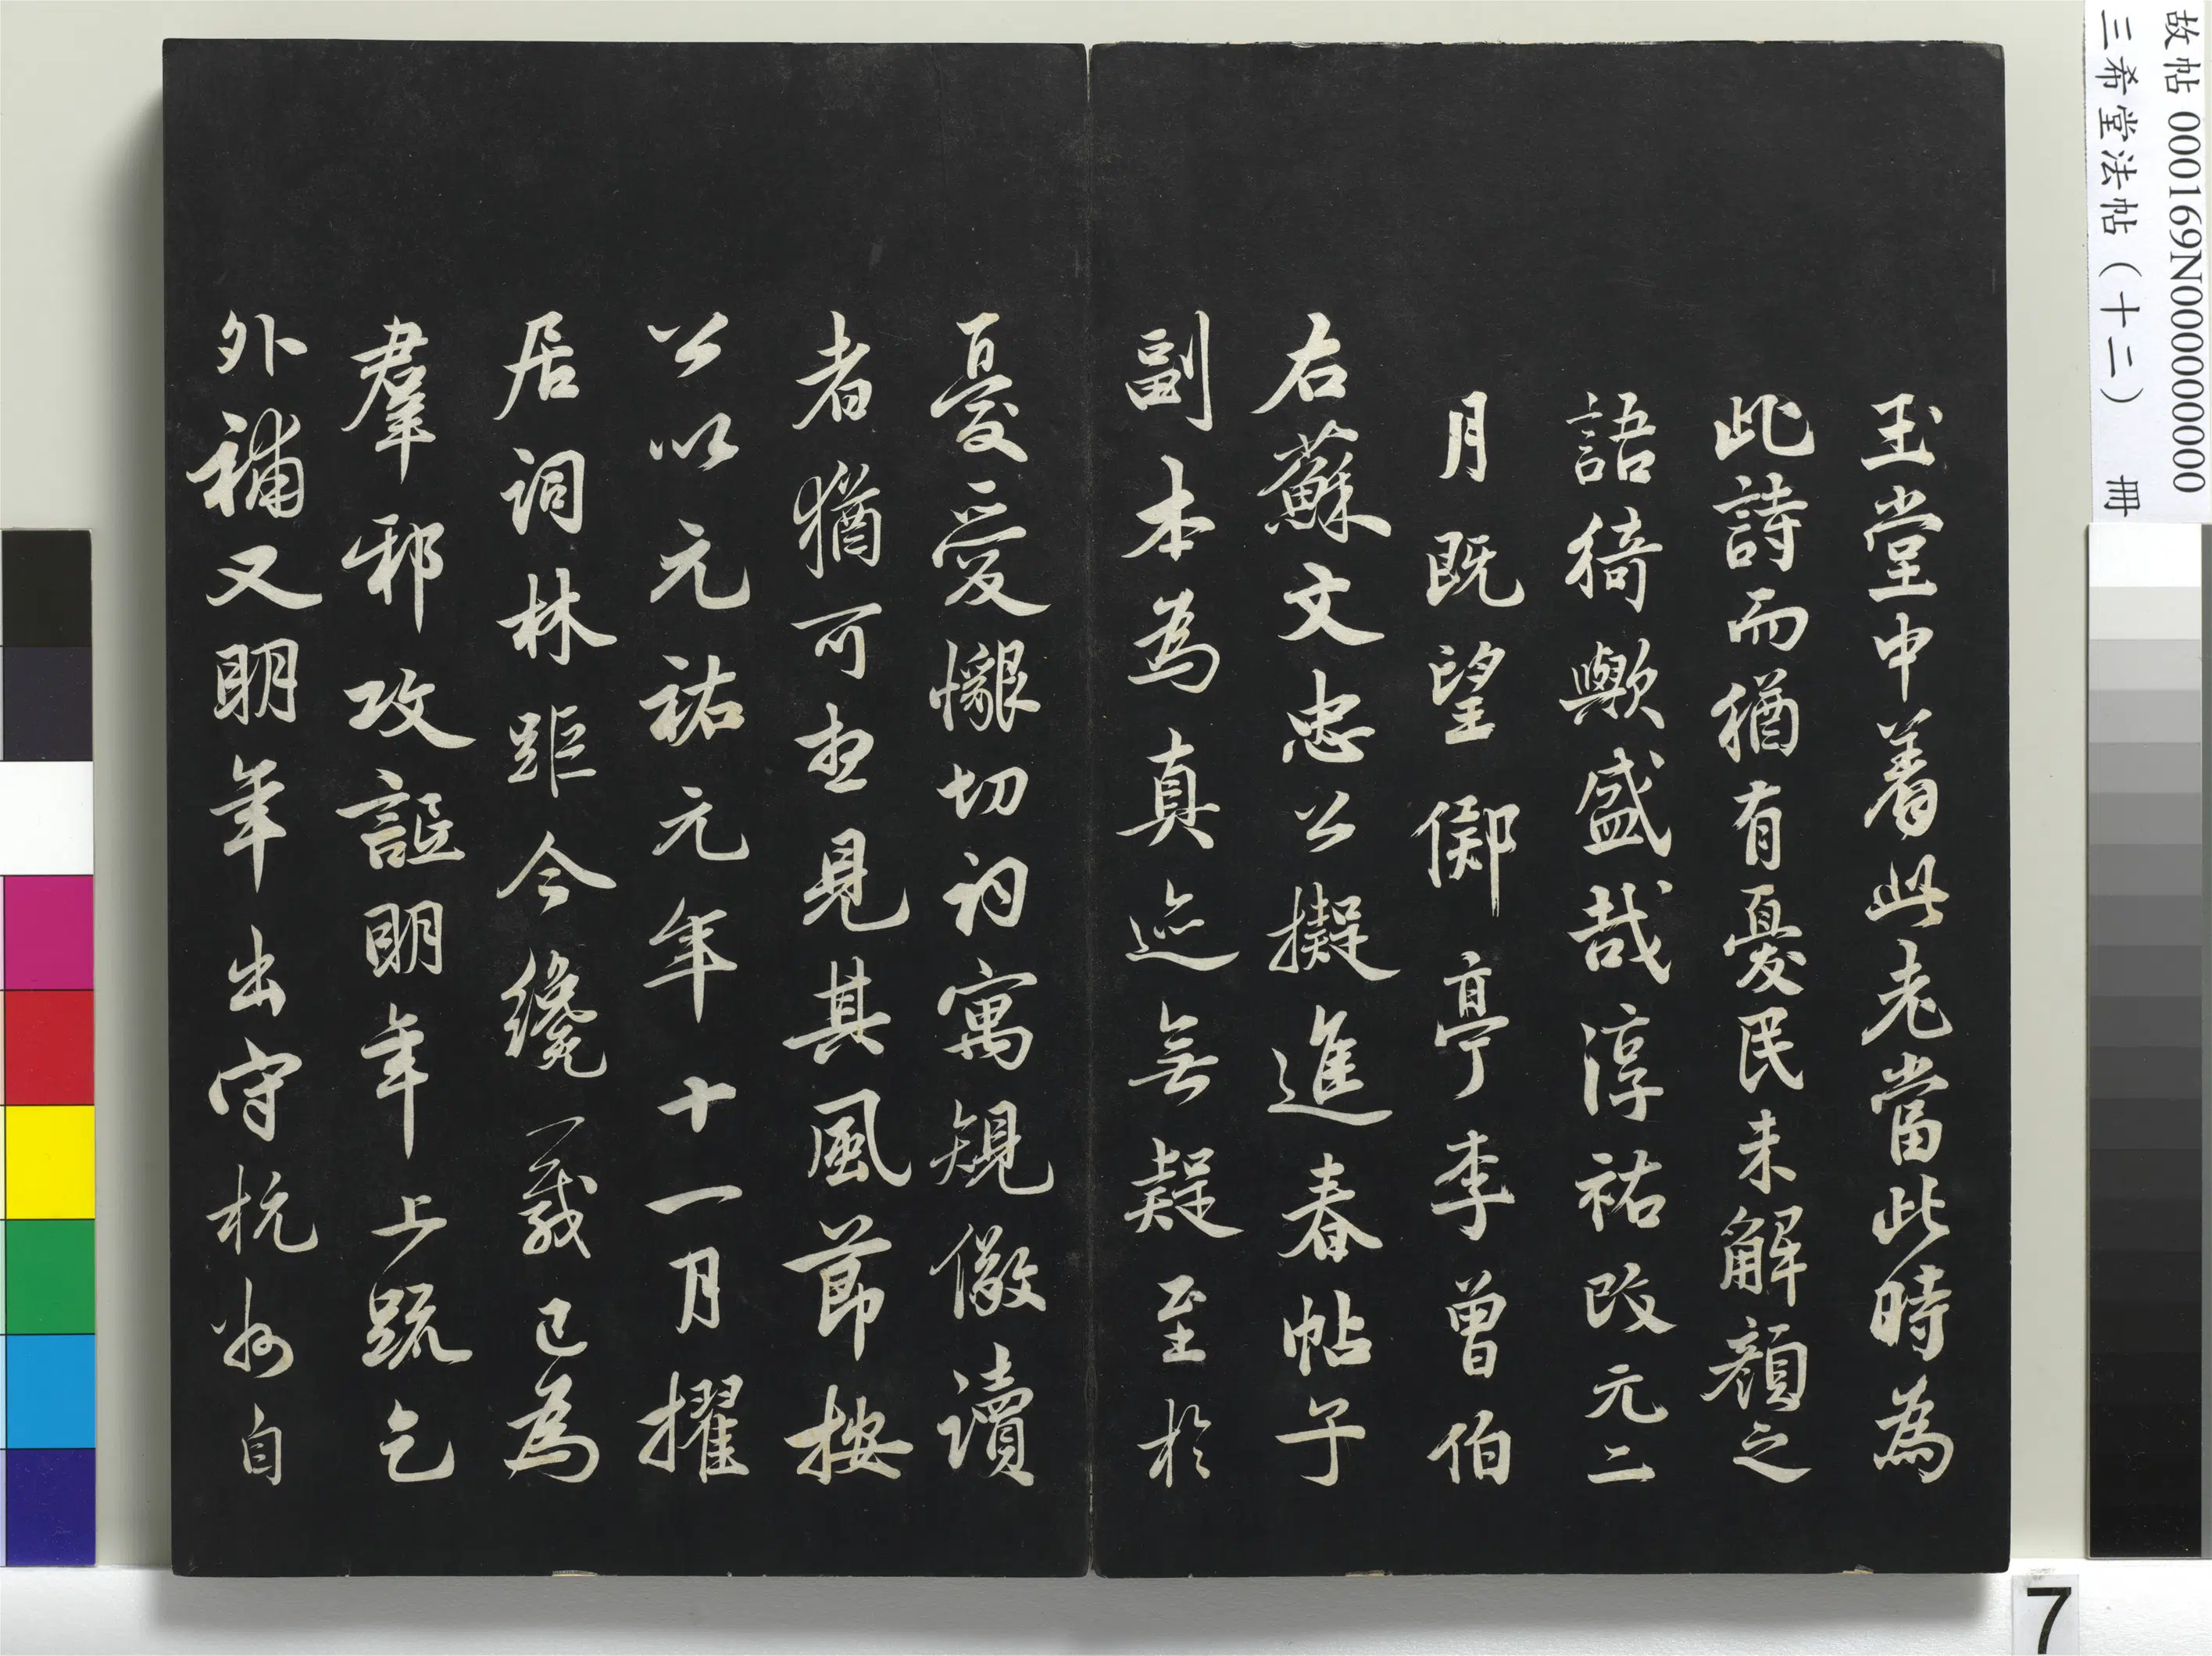 故帖 000169N000000000
三希堂法帖（十二） 冊
玉堂中着此老當此時為
此詩而猶有憂民未解顏之
語猗歟盛哉淳祐改元二
月既望鄱亭李曾伯
右蘇文忠公擬進春帖子
副本為真迹無疑至於
憂愛懇切詞寓規儆讀
者猶可想見其風節按
公以元祐元年十一月擢
居詞林距今纔一載已為
羣邪攻詆明年上疏乞
外補又明年出守杭州自
7